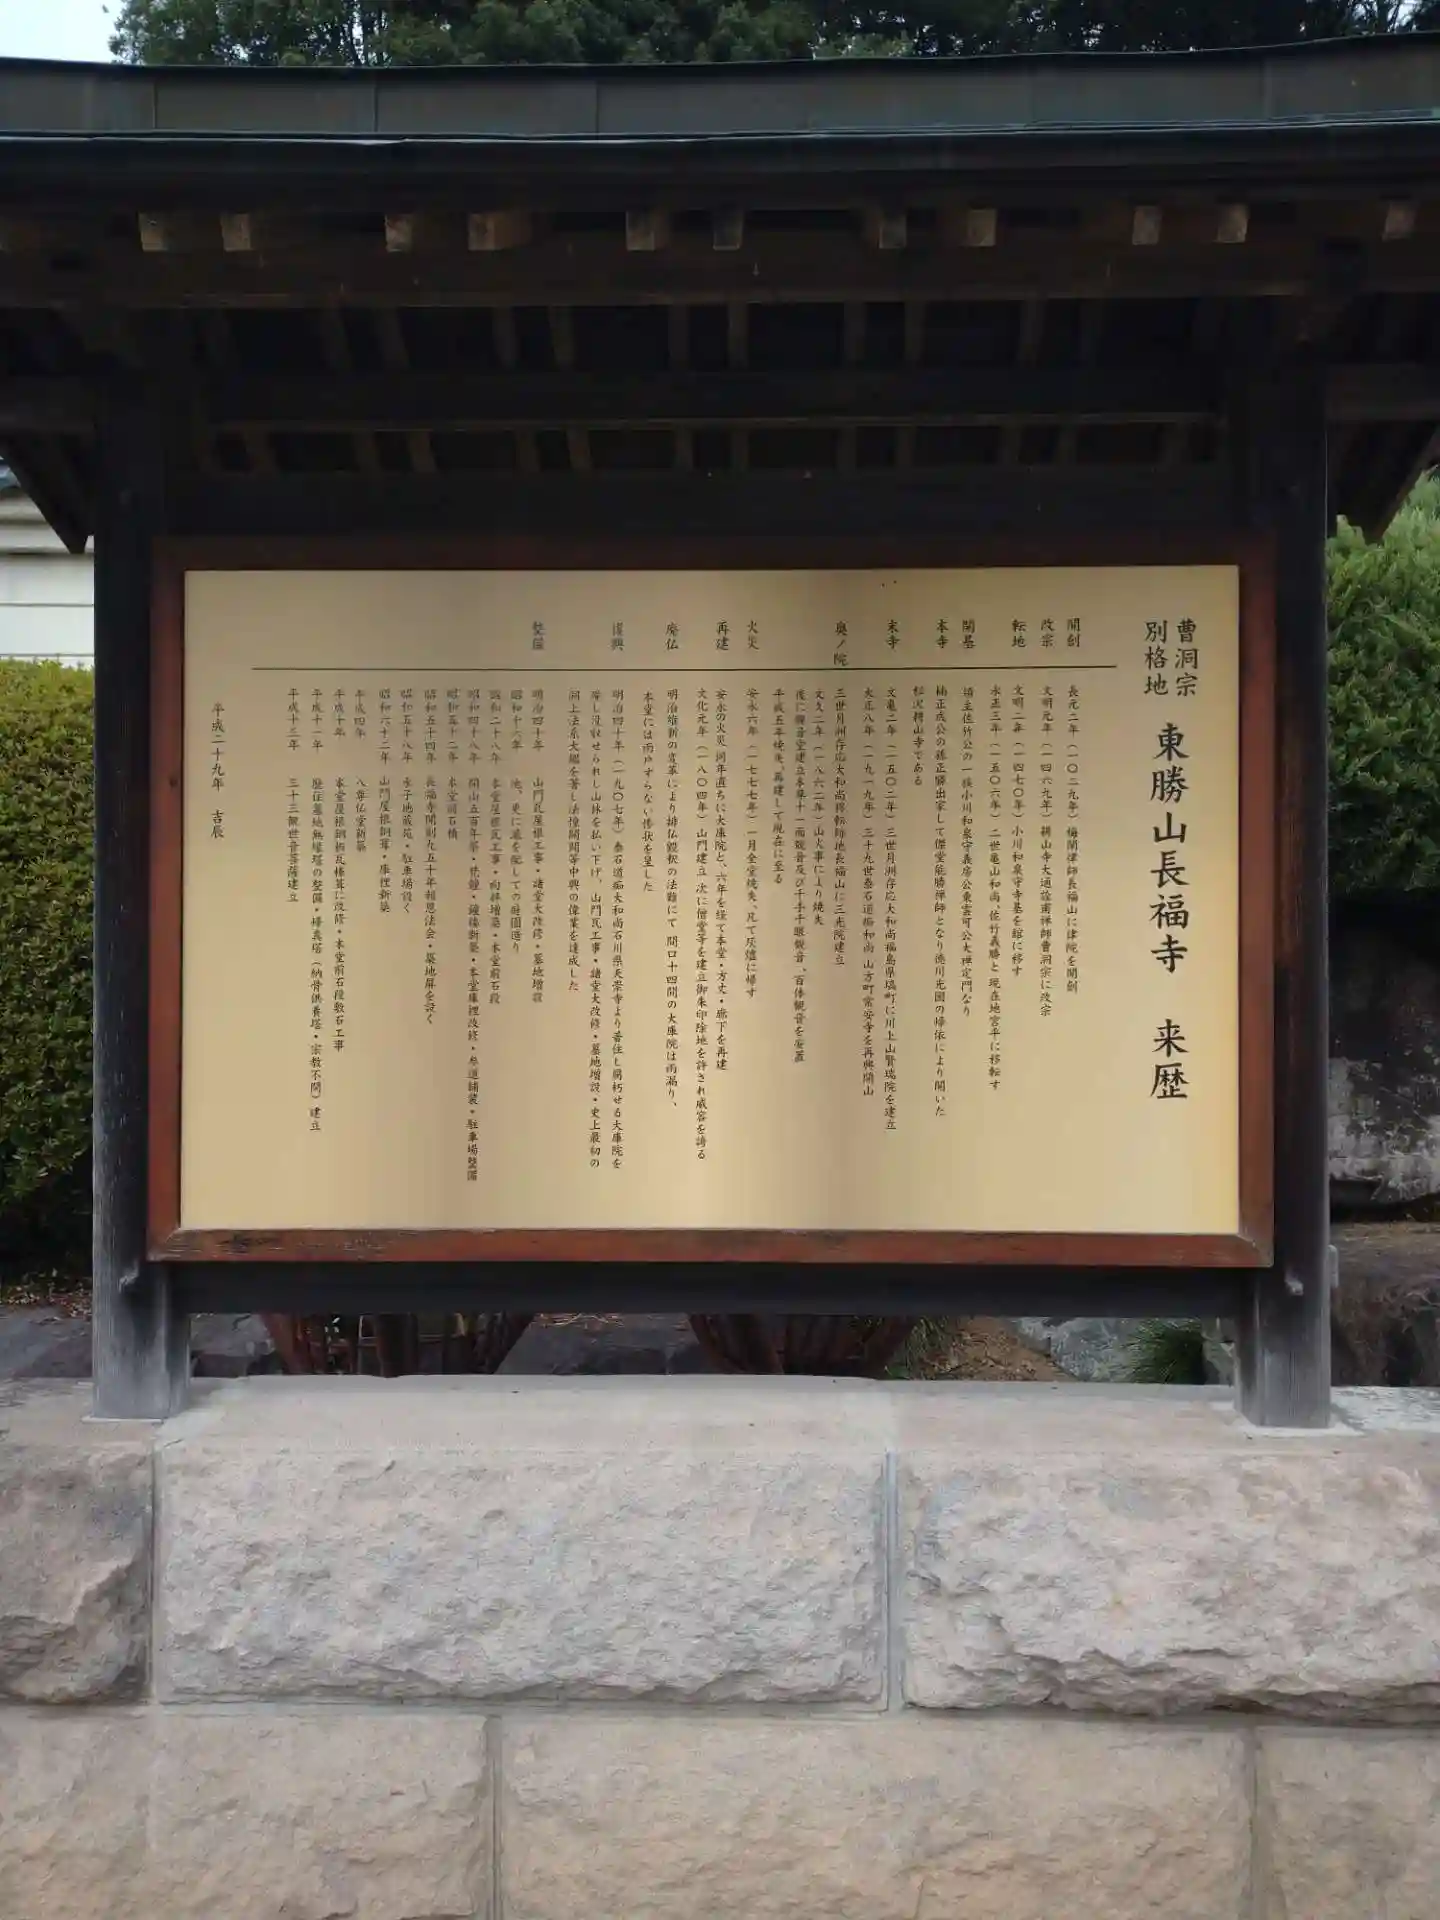 曹洞宗
別格地
東勝山長福寺 来歴
開創 長元二年(一〇二九年)梅蘭律師長福山に律院を開創
改宗 文明元年(一四六九年)耕山寺大通詮甫禅師曹洞宗に改宗
転地 文明二年(一四七〇年)小川和泉守寺基を館に移す
永正三年(一五〇六年)二世亀山和尚、佐竹義勝と現在地宮平に移転す
開基 領主佐竹公の一族小川和泉守義房公東雲可公大禅定門なり
本寺 楠正成公の孫正勝出家して傑堂能勝禅師となり徳川光圀の帰依により開いた
松沢耕山寺である
末寺 文亀二年(一五〇二年)三世月洲存応大和尚福島県塙町に川上山賢瑞院を建立
大正八年(一九一九年)三十九世泰石道痴和尚 山方町常安寺を再興開山
奥ノ院 三世月洲存応大和尚移転跡地長福山に三光院建立
文久二年(一八六二年)山火事により焼失
後に観音堂建立本尊十一面観音及び千手千眼観音、百体観音を安置
平成五年焼失、再建して現在に至る
火災 安永六年(一七七七年)一月全堂焼失、凡て灰燼に帰す
再建 安永の火災 同年直ちに大庫院と、六年を経て本堂・方丈・廊下を再建
文化元年(一八〇四年)山門建立 次に僧堂等を建立御朱印除地を許され威容を誇る
廃仏 明治維新の変革により排仏毀釈の法難にて 間口十四間の大庫院は雨漏り、
本堂には雨戸すらない惨状を呈した
復興 明治四十年(一九〇七年)泰石道痴大和尚石川県天崇寺より晋住し腐朽せる大庫院を
壊し没収せられし山林を払い下げ、山門瓦工事・諸堂大改修・墓地増設・史上最初の
洞上法系大鑑を著し法憧開闢等中興の偉業を達成した
整備 明治四十年 山門瓦屋根工事・諸堂大改修・墓地増設
昭和十六年 池、更に滝を配しての庭園造り
昭和二十八年 本堂屋根瓦工事・向拝増築・本堂前石段
昭和四十八年 開山五百年祭・梵鐘・鐘楼新築・本堂庫裡改修・参道舗装・駐車場整備
昭和五十二年 本堂前石橋
昭和五十四年 長福寺開創九五十年報恩法会・築地屏を設く
昭和五十八年 水子地蔵苑・駐車場設く
昭和六十二年 山門屋根銅葺・庫裡新築
平成四年 八尊仏堂新築
平成十年 本堂屋根銅板瓦棒葺に改修・本堂前石段敷石工事
平成十一年 歴住墓地無縁塔の整備・帰真塔(納骨供養塔・宗教不問)建立
平成十三年 三十三観世音菩薩建立
平成二十九年 吉辰